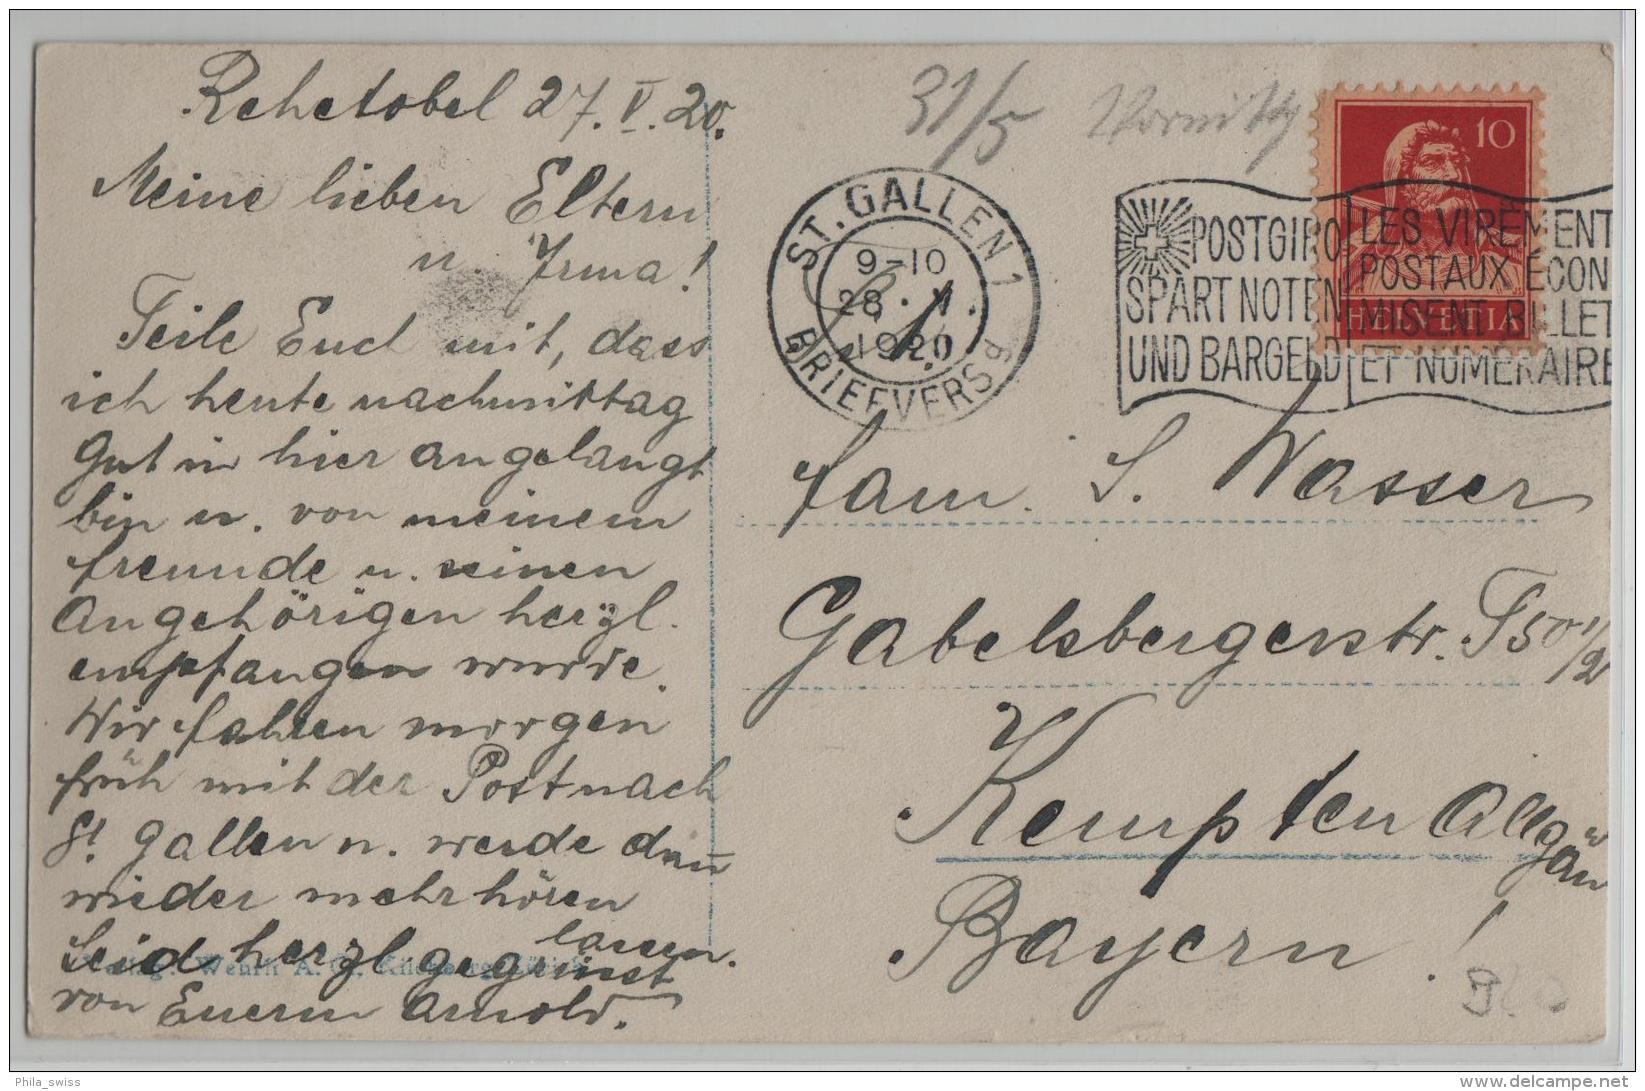 Rehetobel 27. V. 20.
Meine lieben Eltern
u. Irma!
Teile Euch mit, dass
ich heute nachmittag
gut in hier angelangt
bin u. von meinem
Freunde u. seinen
Angehörigen herzl.
empfangen wurde.
Wir fahren morgen
früh mit der Post nach
St. Gallen u. werde dann
wieder mehr hören
lassen.
Seid herzl. gegrüsst
von Euerm Arnold.
31/5
ST. GALLEN 1
9-10
28. V.
1920
BRIEFVERSd
POSTGIRO
SPART NOTEN
UND BARGELD
LES VIREMENT
POSTAUX ÉCON
MISENT BILLET
ET NUMÉRAIRE
10
HELVETIA
Fam. S. Wasser
Gabelsbergerstr. T 50 1/2
Kempten Allgäu
Bayern!
Phila_swiss
www.delcampe.net